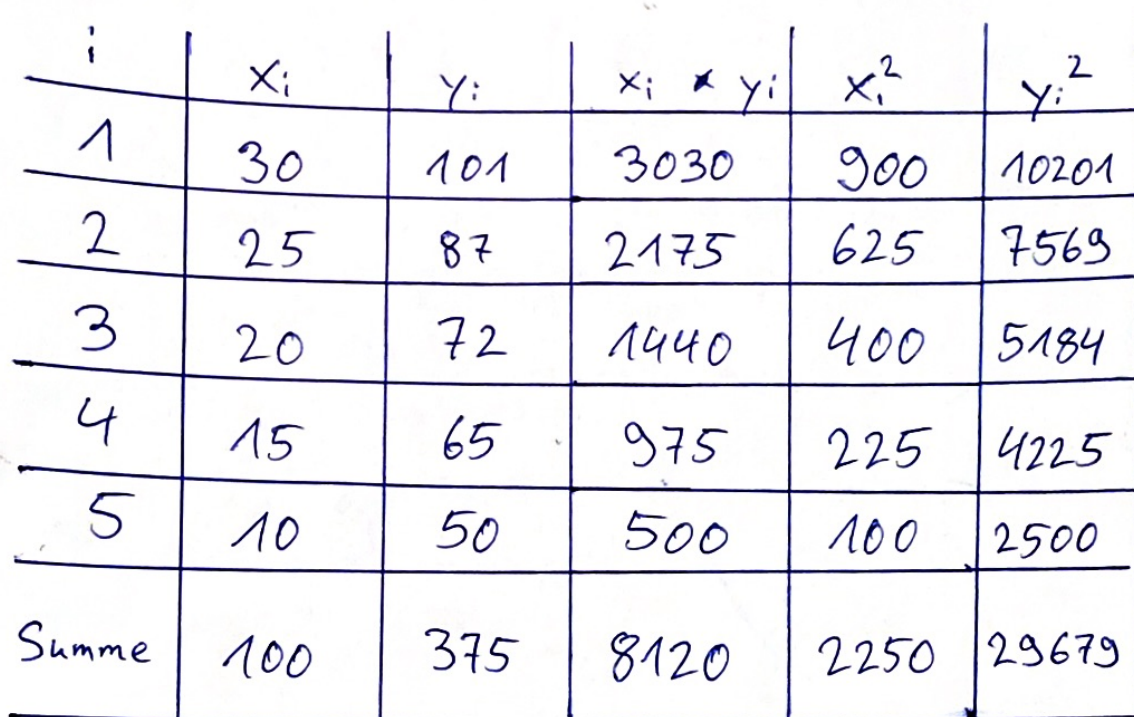 i xi yi xi * yi xi² yi²
1 30 101 3030 900 10201
2 25 87 2175 625 7569
3 20 72 1440 400 5184
4 15 65 975 225 4225
5 10 50 500 100 2500
Summe 100 375 8120 2250 29679